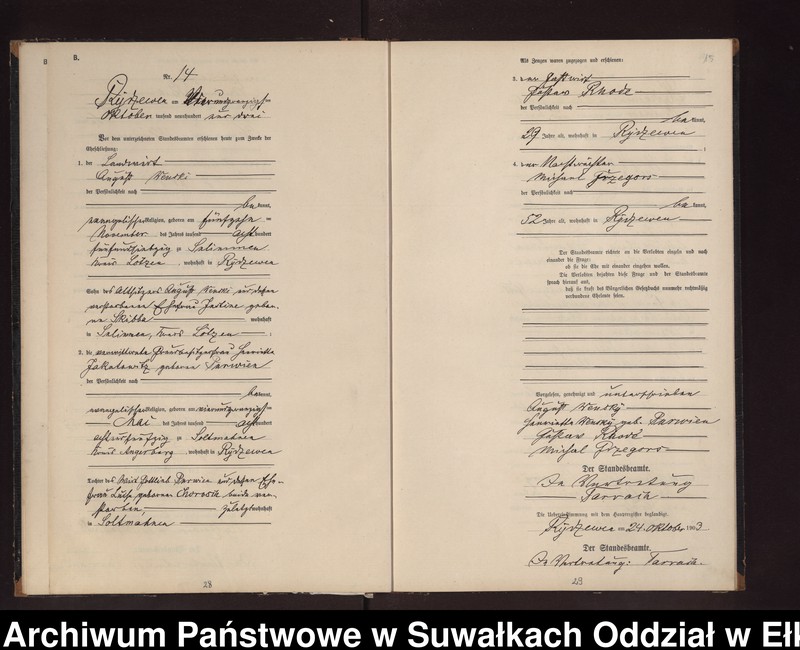 B.
B.
Nr. 14
Rydzewen am vierundzwanzigsten
Oktober tausend neunhundert und drei
Vor dem unterzeichneten Standesbeamten erschienen heute zum Zwecke der
Eheschließung:
1. der Landwirt
August Wenski
der Persönlichkeit nach
be kannt,
evangelischer Religion, geboren am fünfzehnten
November des Jahres tausend acht hundert
fünfundsiebzig zu Salinnen
Kreis Lötzen, wohnhaft in Rydzewen
Sohn des Altsitzers August Wenski und dessen
verstorbenen Ehefrau Justine gebore-
ne Skibba wohnhaft
in Kreis Lötzen
2. die verwittwete Henriette
geborene Darwien
der Persönlichkeit nach
be kannt,
evangelischer Religion, geboren am vierundzwanzigsten
Mai des Jahres tausend acht hundert
achtundfünfzig zu Soltmahnen
Kreis Angerburg, wohnhaft in Rydzewen
Tochter des Wirt Gottlieb Darwien und dessen Ehe-
frau Luise geborenen Chorosch beide ver-
storben, zuletzt wohnhaft
in Soltmahnen
28
Als Zeugen waren zugezogen und erschienen:
3. der Gastwirt
Gustav Rhode
der Persönlichkeit nach
be kannt,
29 Jahre alt, wohnhaft in Rydzewen
;
4. der Nachtwächter
Michael Grzegorz
der Persönlichkeit nach
be kannt,
52 Jahre alt, wohnhaft in Rydzewen
Der Standesbeamte richtete an die Verlobten einzeln und nach
einander die Frage:
ob sie die Ehe mit einander eingehen wollen.
Die Verlobten bejahten diese Frage und der Standesbeamte
sprach hierauf aus,
daß sie kraft des Bürgerlichen Gesetzbuchs nunmehr rechtmäßig
verbundene Eheleute seien.
Vorgelesen, genehmigt und unterschrieben
August Wensky
Henriette Wensky geb. Darwien
Gustav Rhode
Michael Grzegorz
Der Standesbeamte.
In Vertretung
Tarrach
Die Uebereinstimmung mit dem Hauptregister beglaubigt.
Rydzewen am 24. Oktober 1903
Der Standesbeamte.
In Vertretung: Tarrach.
29
Archiwum Państwowe w Suwałkach Oddział w Ełk